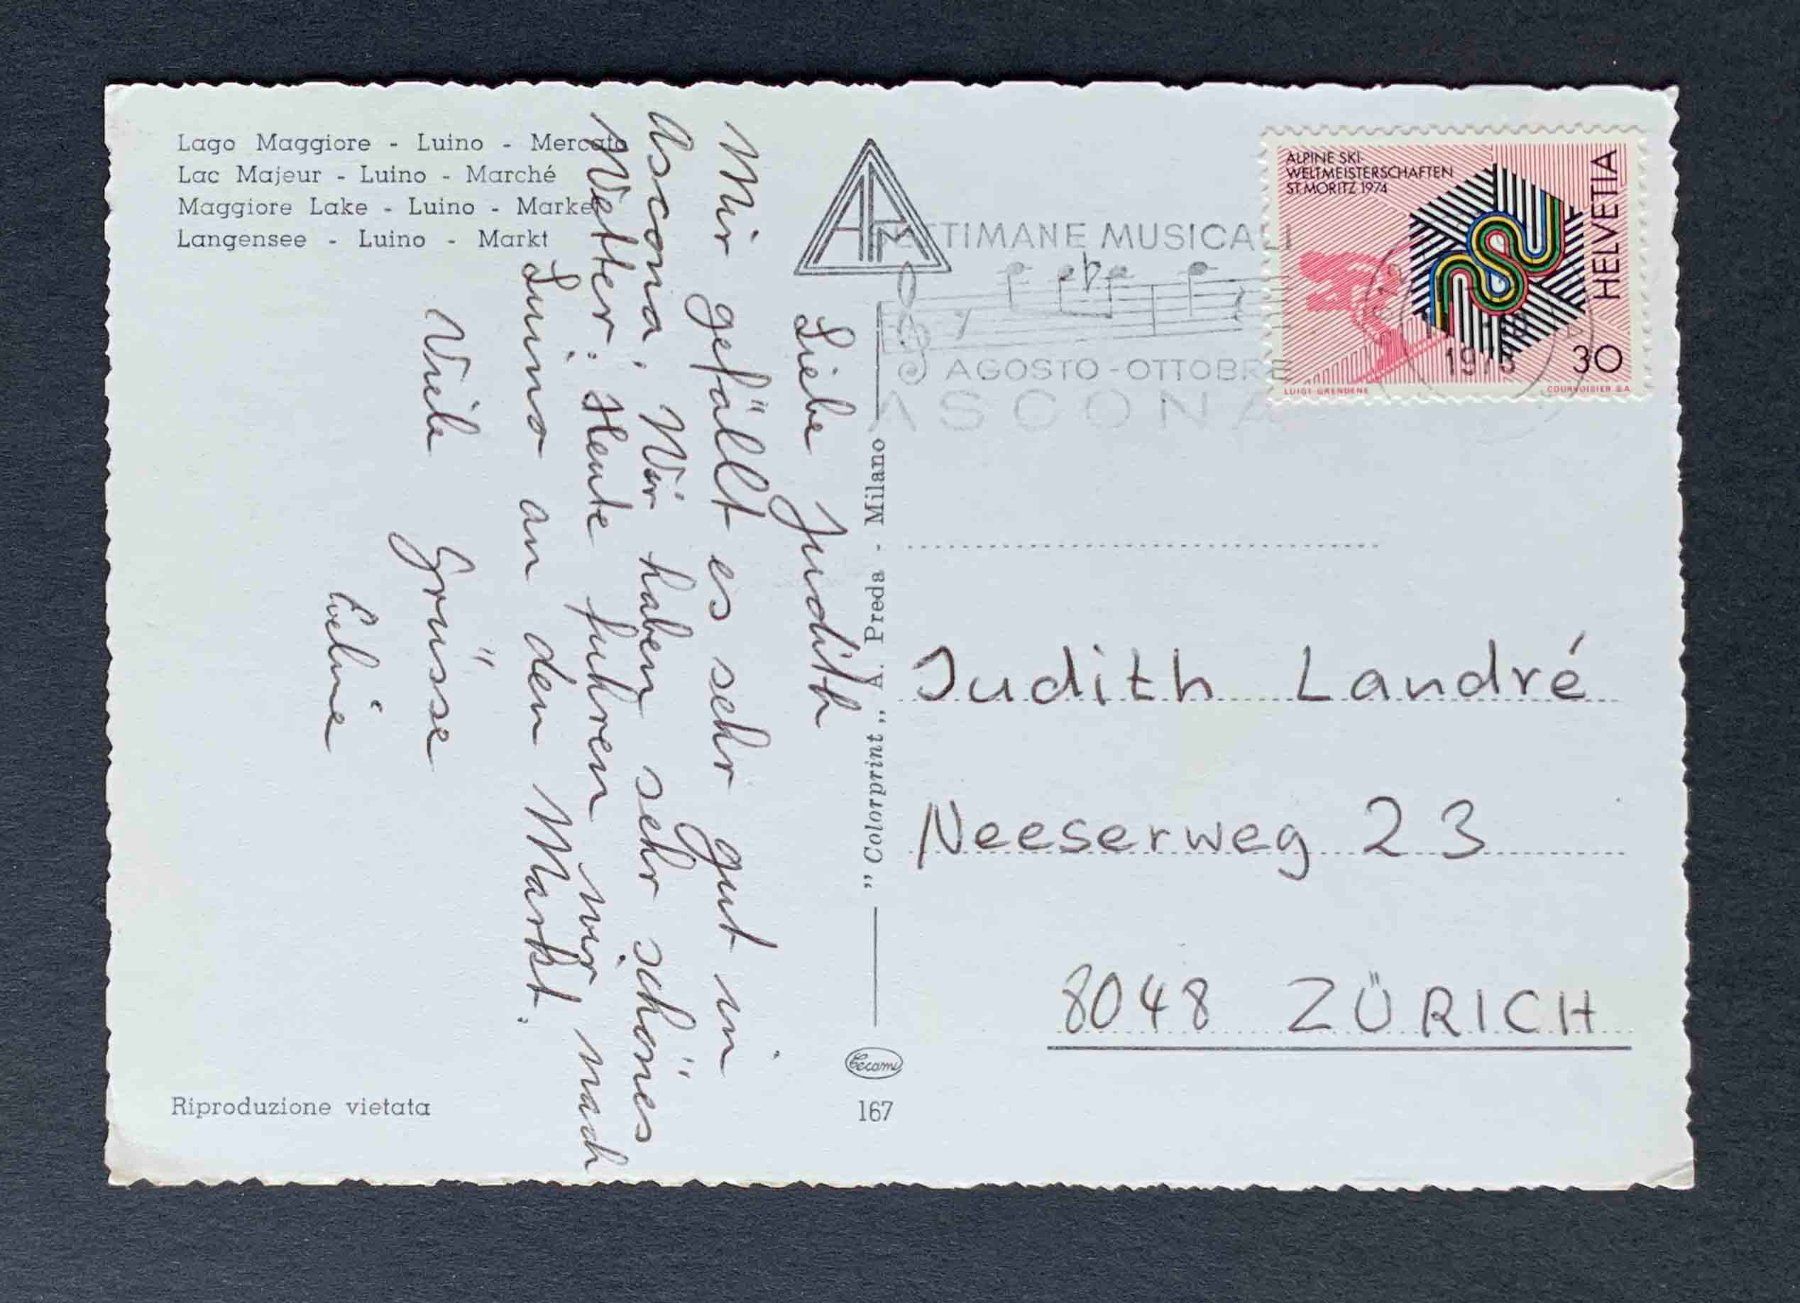 Lago Maggiore - Luino - Mercato
Lac Majeur - Luino - Marché
Maggiore Lake - Luino - Market
Langensee - Luino - Markt
Liebe Judith
Mir gefällt es sehr gut in
Ascona. Wir haben sehr schönes
Wetter. Heute fuhren wir nach
Luino an den Markt.
Viele Grüsse
Eveline
Riproduzione vietata
„Colorprint„ A. Preda - Milano
Cecami
167
SETTIMANE MUSICALI
AGOSTO - OTTOBRE
ASCONA
ALPINE SKI-
WELTMEISTERSCHAFTEN
ST. MORITZ 1974
HELVETIA
30
COURVOISIER S.A.
Judith Landré
Neeserweg 23
8048 ZÜRICH